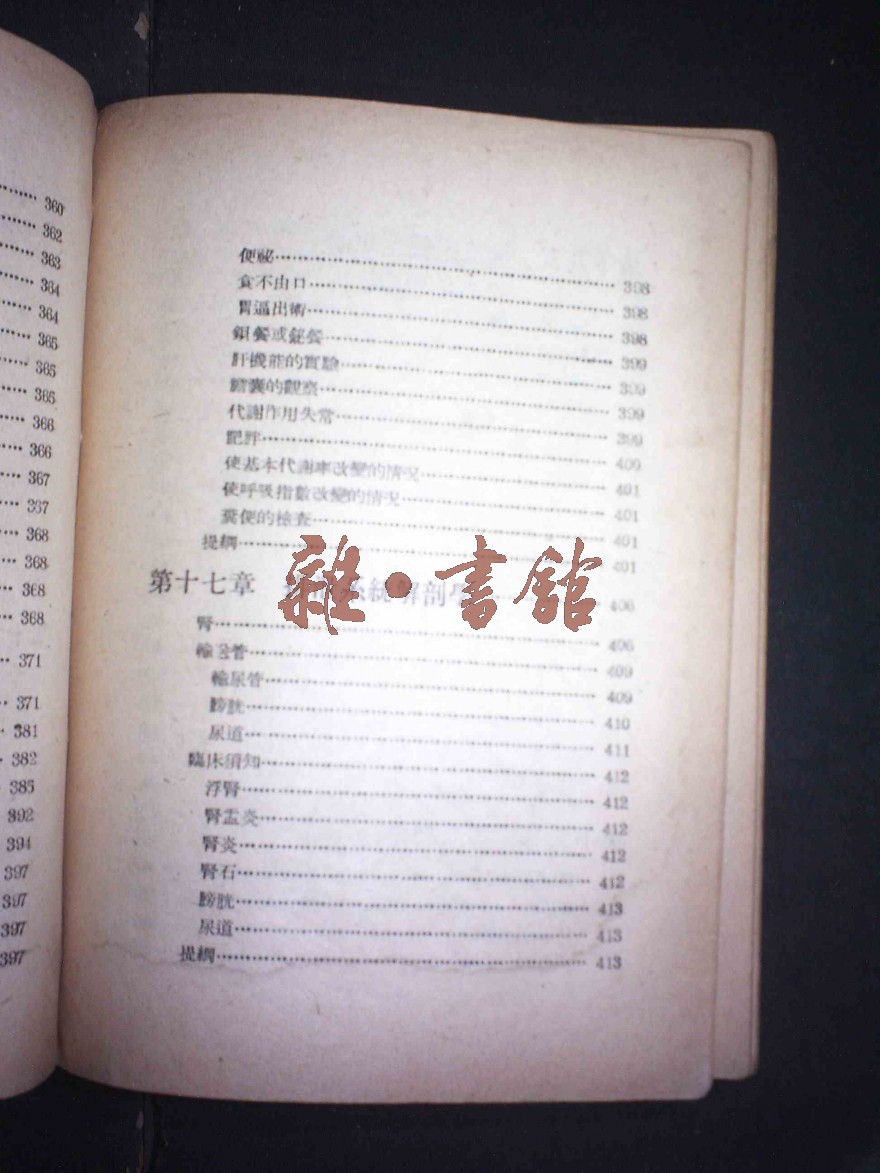 360
362
363
364
364
365
365
365
366
366
367
367
368
368
368
368
371
371
381
382
385
392
394
397
397
397
397
便祕 398
食不由口 398
胃逼出術 398
鋇餐或鉍餐 399
肝機能的實驗 399
膽囊的觀察 399
代謝作用失常 399
肥胖 400
使基本代謝率改變的情況 401
使呼吸指數改變的情況 401
糞便的檢查 401
提綱 401
第十七章 系統解剖學 406
腎 406
輸尿管 409
膀胱 410
尿道 411
臨床須知 412
浮腎 412
腎盂炎 412
腎炎 412
腎石 412
膀胱 413
尿道 413
提綱 413
雜·書館